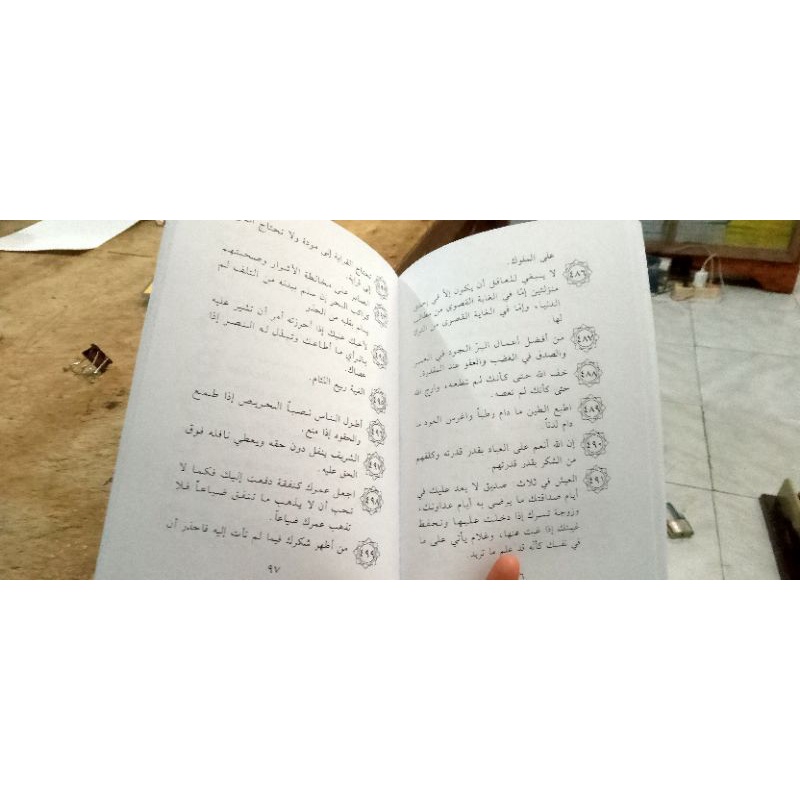 على الملوك.
٤٨٦ لا ينبغي للعاقل أن يكون إلا في إحدى
منزلتين إمّا في الغاية القصوى من
الدنيا، وإمّا في الغاية القصوى من الترك
لها
٤٨٧ من أفضل أعمال البرّ الجود في العسر
والصدق في الغضب والعفو عند المقدرة.
٤٨٨ خف الله حتى كأنك لم تطعه، وارج الله
حتى كأنك لم تعصه.
٤٨٩ اطبع الطين ما دام رطباً واغرس العود ما
دام لدناً
٤٩٠ إن الله أنعم على العباد بقدر قدرته وكلفهم
من الشكر بقدر قدرتهم
٤٩١ العيش في ثلاث صديق لا يعد عليك في
أيام صداقتك ما يرضى به أيام عداوتك،
وزوجة تسرك إذا دخلت عليها وتحفظ
غيبتك إذا غبت عنها، وغلام يأتي على ما
في نفسك كأنه قد علم ما تريد.
٦
مودة ولا تحتاج
تحتاج القرابة إلى
إلى قرابة.
الصابر على مخالطة الأشرار وصحبتهم
كراكب البحر إن سلم ببدنه من التلف لم
يسلم بقلبه من الحذر
لأخيك عليك إذا أحزنه أمر أن تشير عليه
بالرأي ما أطاعك وتبذل له النصر إذا
عصاك.
٤٩٥ الغيبة ربيع اللئام.
٤٩٦ أطول الناس نصباً الحريص إذا طمع
والحقود إذا منع.
٤٩٧ الشريف يقبل دون حقه ويعطي نافلة فوق
الحق عليه.
٤٩٨ اجعل عمرك كنفقة دفعت إليك فكما لا
تحب أن لا يذهب ما تنفق ضياعاً فلا
تذهب عمرك ضياعاً.
٤٩٩ من أظهر شكرك فيما لم تأت إليه فاحذر أن
٩٧